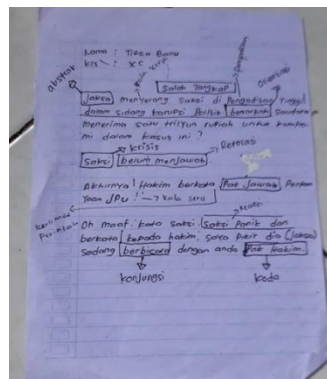 Nama : Tirza Banu
Kls : X C
abstrak
Salah Tangkap
Jaksa menyerang saksi di Pengadilan Tinggi
dalam sidang korupsi Politik benarkah Saudara
menerima satu trilyun rupiah untuk
mi dalam kasus ini ?
krisis
Saksi belum menjawab
Akhirnya ! Hakim berkata Pak Jawab Pertan
Yaan JPU ! → kata seru
Oh maaf kata saksi. Saksi Panik dan
berkata kepada hakim, saya pikir dia (Jaksa)
Sedang berbicara dengan anda Pak Hakim.
konjungsi
koda